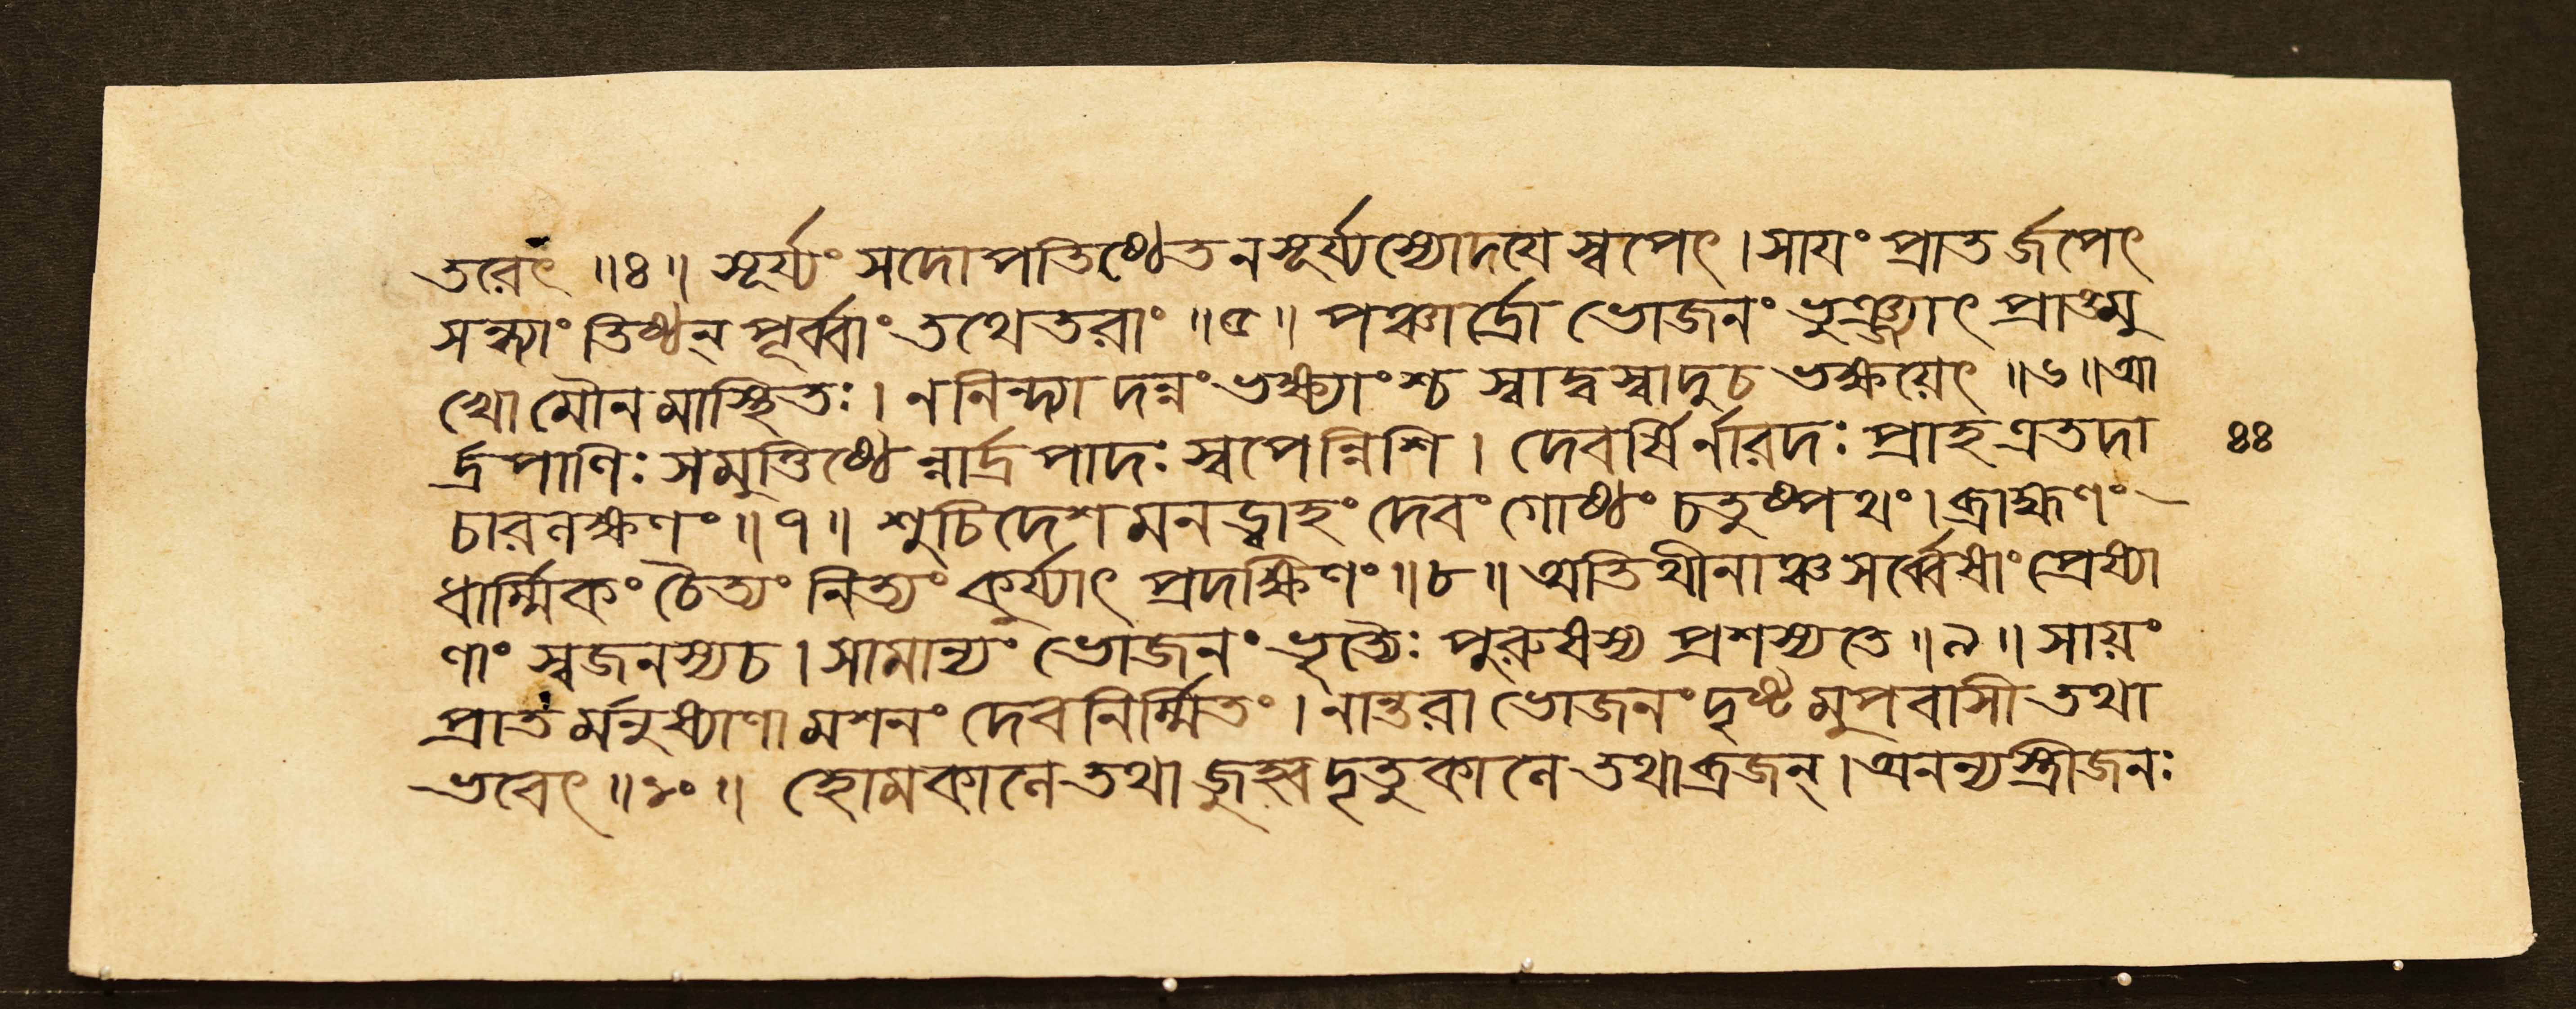 তরেৎ ॥৪॥ সূর্য্যং সদোপতিষ্ঠেত ন সূর্য্যস্যোদযে স্বপেৎ । সাযং প্রাতর্জপেৎ
সন্ধ্যাং তিষ্ঠন্ পূর্ব্বাং তথেতরাং ॥৫॥ পঞ্চার্দ্রো ভোজনং ভুঞ্জ্যাৎ প্রাঙমু
খো মৌনমাস্থিতঃ । ন নিন্দ্যাদন্নং ভক্ষ্যাংশ্চ স্বাদ্বস্বাদু চ ভক্ষয়েৎ ॥৬॥ আ
র্দ্রপাণিঃ সমুত্তিষ্ঠেন্নার্দ্রপাদঃ স্বপেন্নিশি । দেবর্ষির্নারদঃ প্রাহ এতদা
৪৪
চারলক্ষণং ॥৭॥ শুচিদেশমনড্বাহং দেবং গোষ্ঠং চতুষ্পথং । ব্রাহ্মণং
ধার্ম্মিকং চৈত্যং নিত্যং কুর্য্যাৎ প্রদক্ষিণং ॥৮॥ অতিথীনাঞ্চ সর্ব্বেষাং প্রেষ্যা
ণাং স্বজনস্য চ । সামান্যং ভোজনং ভৃত্যৈঃ পুরুষস্য প্রশস্যতে ॥৯॥ সায়ং
প্রাতর্মনুষ্যাণামশনং দেবনির্ম্মিতং । নান্তরা ভোজনং দৃষ্টমুপবাসী তথা
ভবেৎ ॥১০॥ হোমকালে তথা জুহ্বদৃতুকালে তথা ব্রজন্ । অনন্যস্ত্রীজনঃ